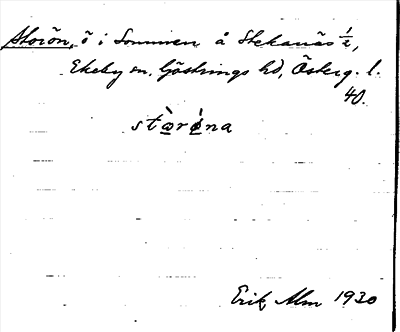 Storön, ö i Sommen å Stekanäs 1/2,
Ekeby sn. Göstrings hd, Österg. l.
40.
stœ̀rǿna
Erik Alm 1930